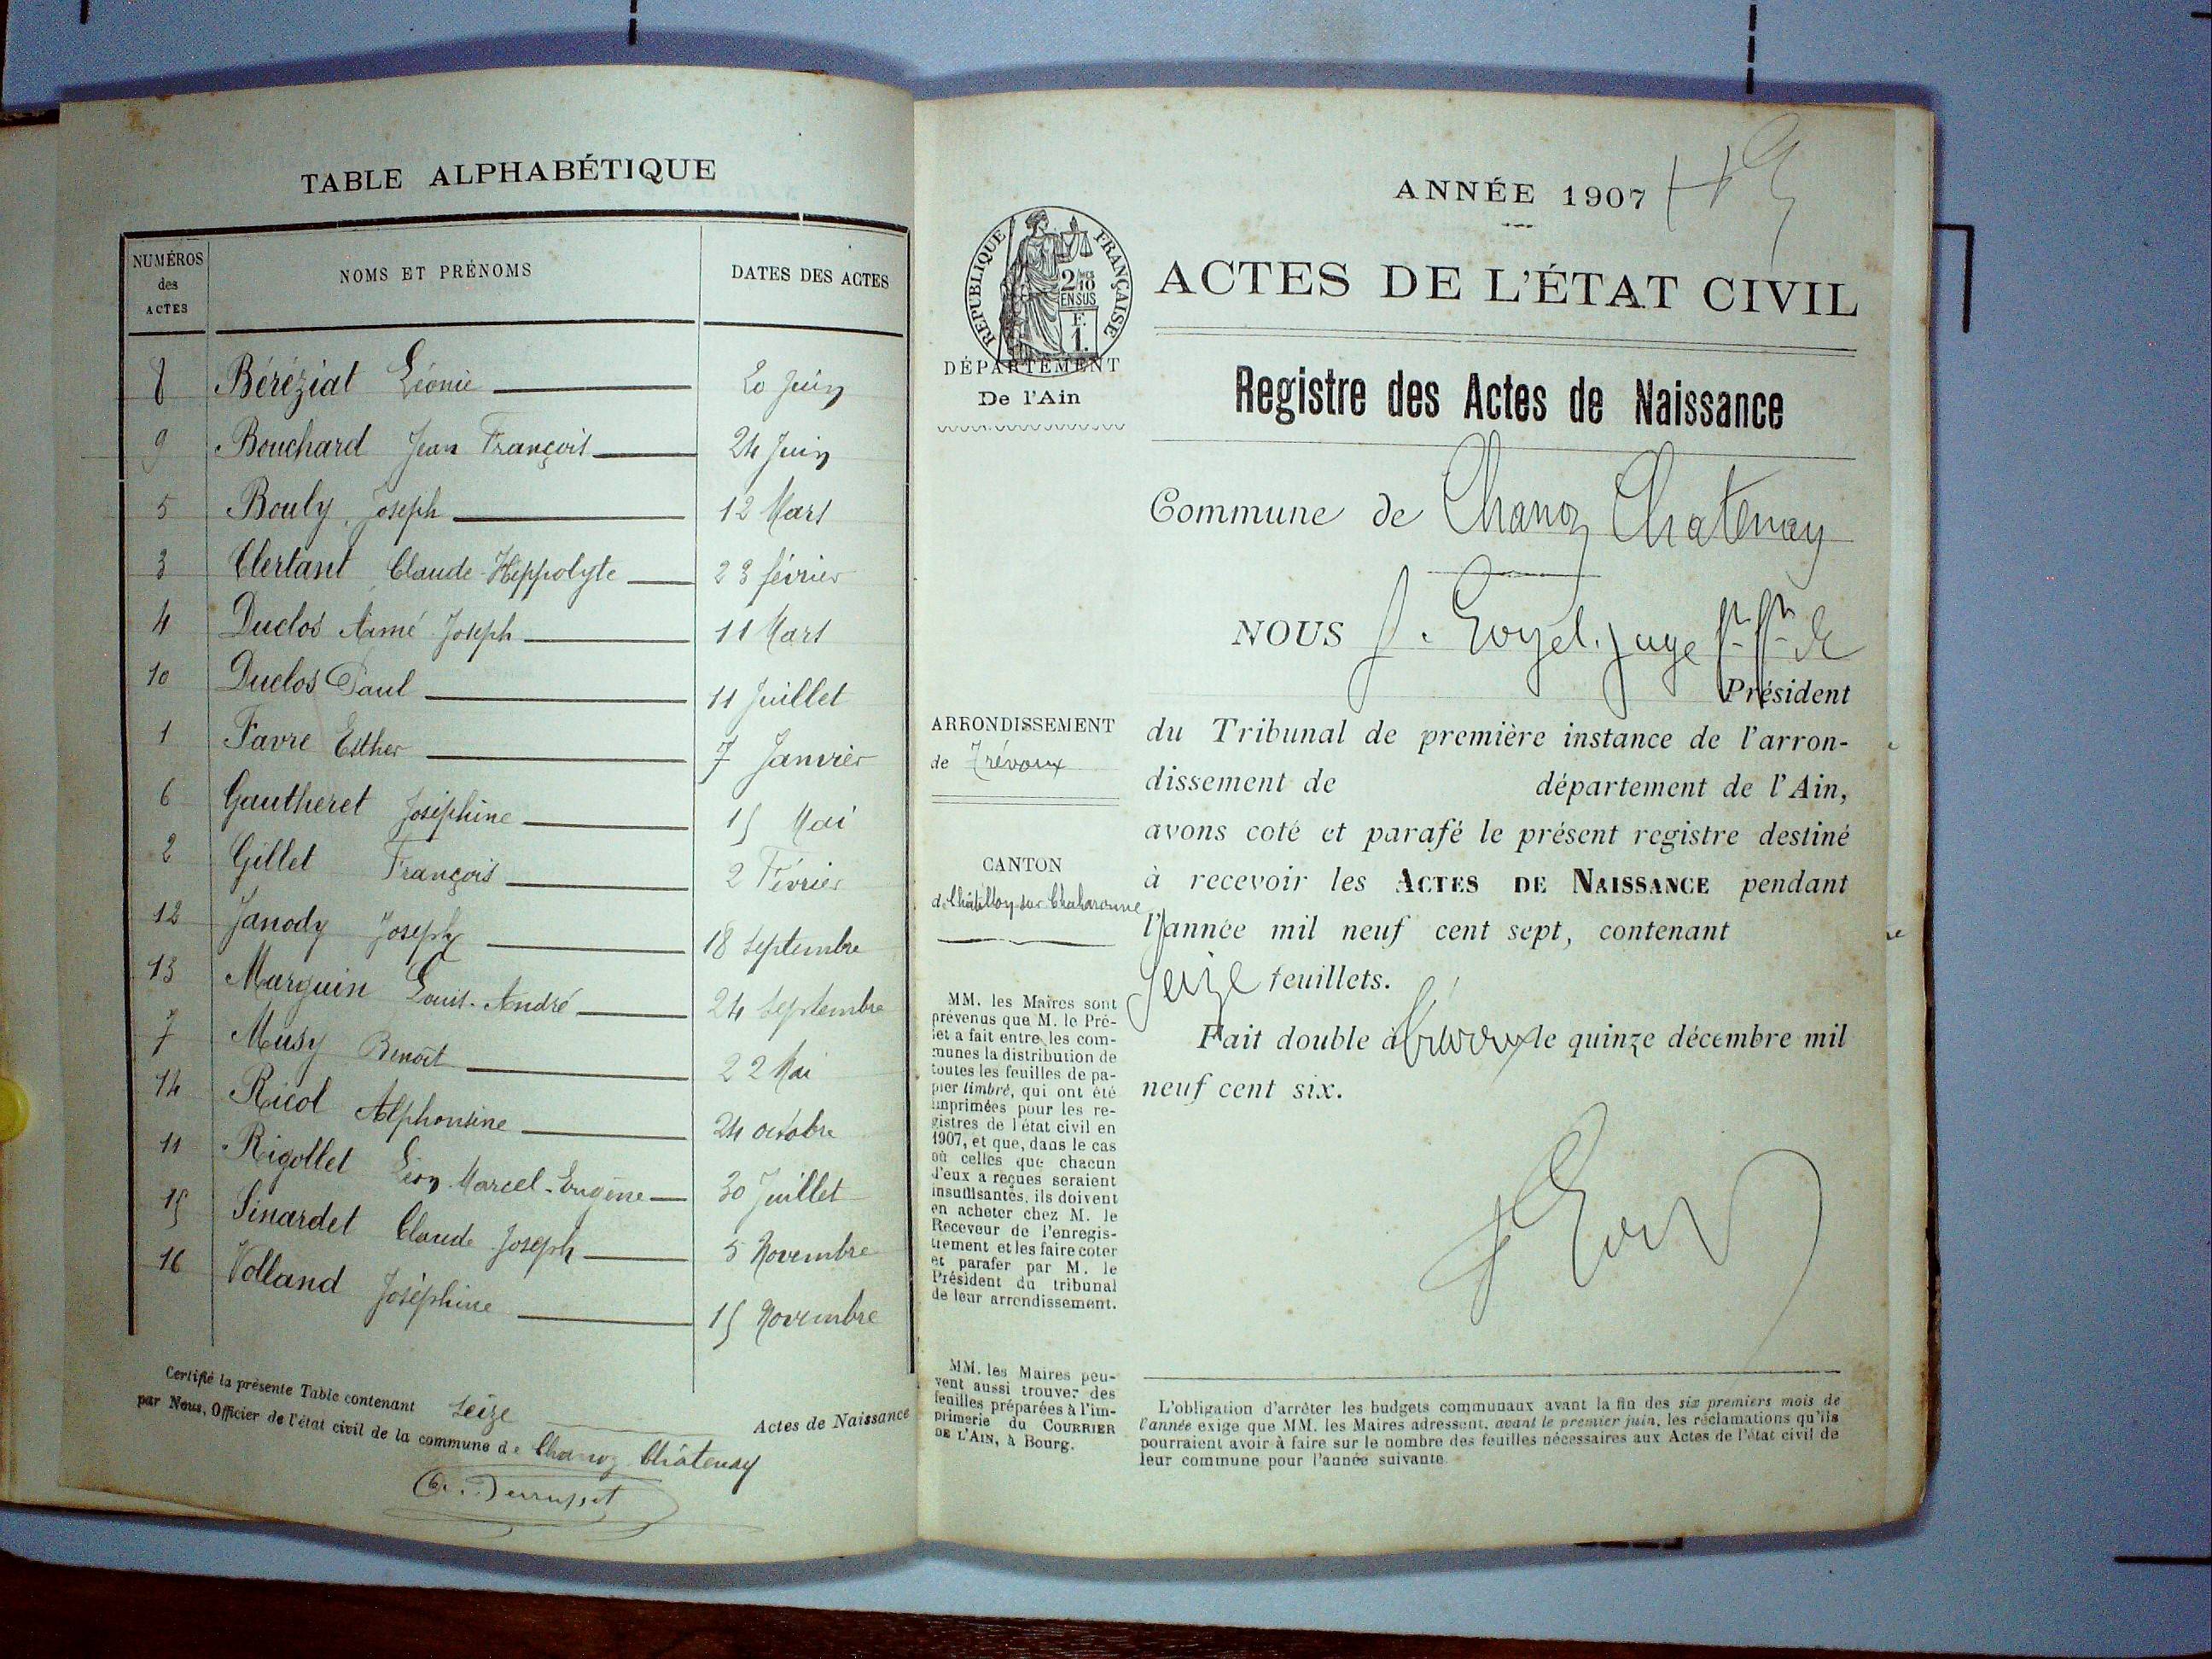 TABLE ALPHABÉTIQUE
NUMÉROS des ACTES
NOMS ET PRÉNOMS
DATES DES ACTES
8 Béréziat Léonie 20 Juin
9 Bouchard Jean François 24 Juin
5 Bouly Joseph 12 Mars
3 Clertant Claude-Hippolyte 23 février
4 Duclos Aimé Joseph 11 Mars
10 Duclos Paul 11 Juillet
1 Favre Esther 7 Janvier
6 Gautheret Joséphine 15 Mai
2 Gillet François 2 Février
12 Janody Joseph 18 Septembre
13 Marguin Louis-André 24 Septembre
7 Musy Benoît 22 Mai
14 Ricol Alphonsine 24 octobre
11 Rigollet Léon-Marcel-Eugène 30 Juillet
15 Sinardet Claude Joseph 5 Novembre
16 Volland Joséphine 15 Novembre
Certifié la présente Table contenant seize Actes de Naissance
par Nous, Officier de l'état civil de la commune de Chanoz Châtenay
ANNÉE 1907
RÉPUBLIQUE FRANÇAISE
2/10
EN SUS
F.
1.
ACTES DE L'ÉTAT CIVIL
DÉPARTEMENT
De l'Ain
Registre des Actes de Naissance
Commune de Chanoz Chatenay
NOUS juge
Président
ARRONDISSEMENT
de Trévoux
du Tribunal de première instance de l'arron-
dissement de département de l'Ain,
avons coté et parafé le présent registre destiné
CANTON
de Châtillon sur Chalaronne
à recevoir les ACTES DE NAISSANCE pendant
l'année mil neuf cent sept, contenant
seize feuillets.
Fait double à Trévoux le quinze décembre mil
neuf cent six.
MM. les Maires sont
prévenus que M. le Pré-
fet a fait entre les com-
munes la distribution de
toutes les feuilles de pa-
pier timbré, qui ont été
imprimées pour les re-
gistres de l'état civil en
1907, et que, dans le cas
où celles que chacun
d'eux a reçues seraient
insuffisantes, ils doivent
en acheter chez M. le
Receveur de l'enregis-
trement et les faire coter
et parafer par M. le
Président du tribunal
de leur arrondissement.
MM. les Maires peu-
vent aussi trouver des
feuilles préparées à l'im-
primerie du COURRIER
DE L'AIN, à Bourg.
L'obligation d'arrêter les budgets communaux avant la fin des six premiers mois de
l'année exige que MM. les Maires adressent, avant le premier juin, les réclamations qu'ils
pourraient avoir à faire sur le nombre des feuilles nécessaires aux Actes de l'état civil de
leur commune pour l'année suivante.